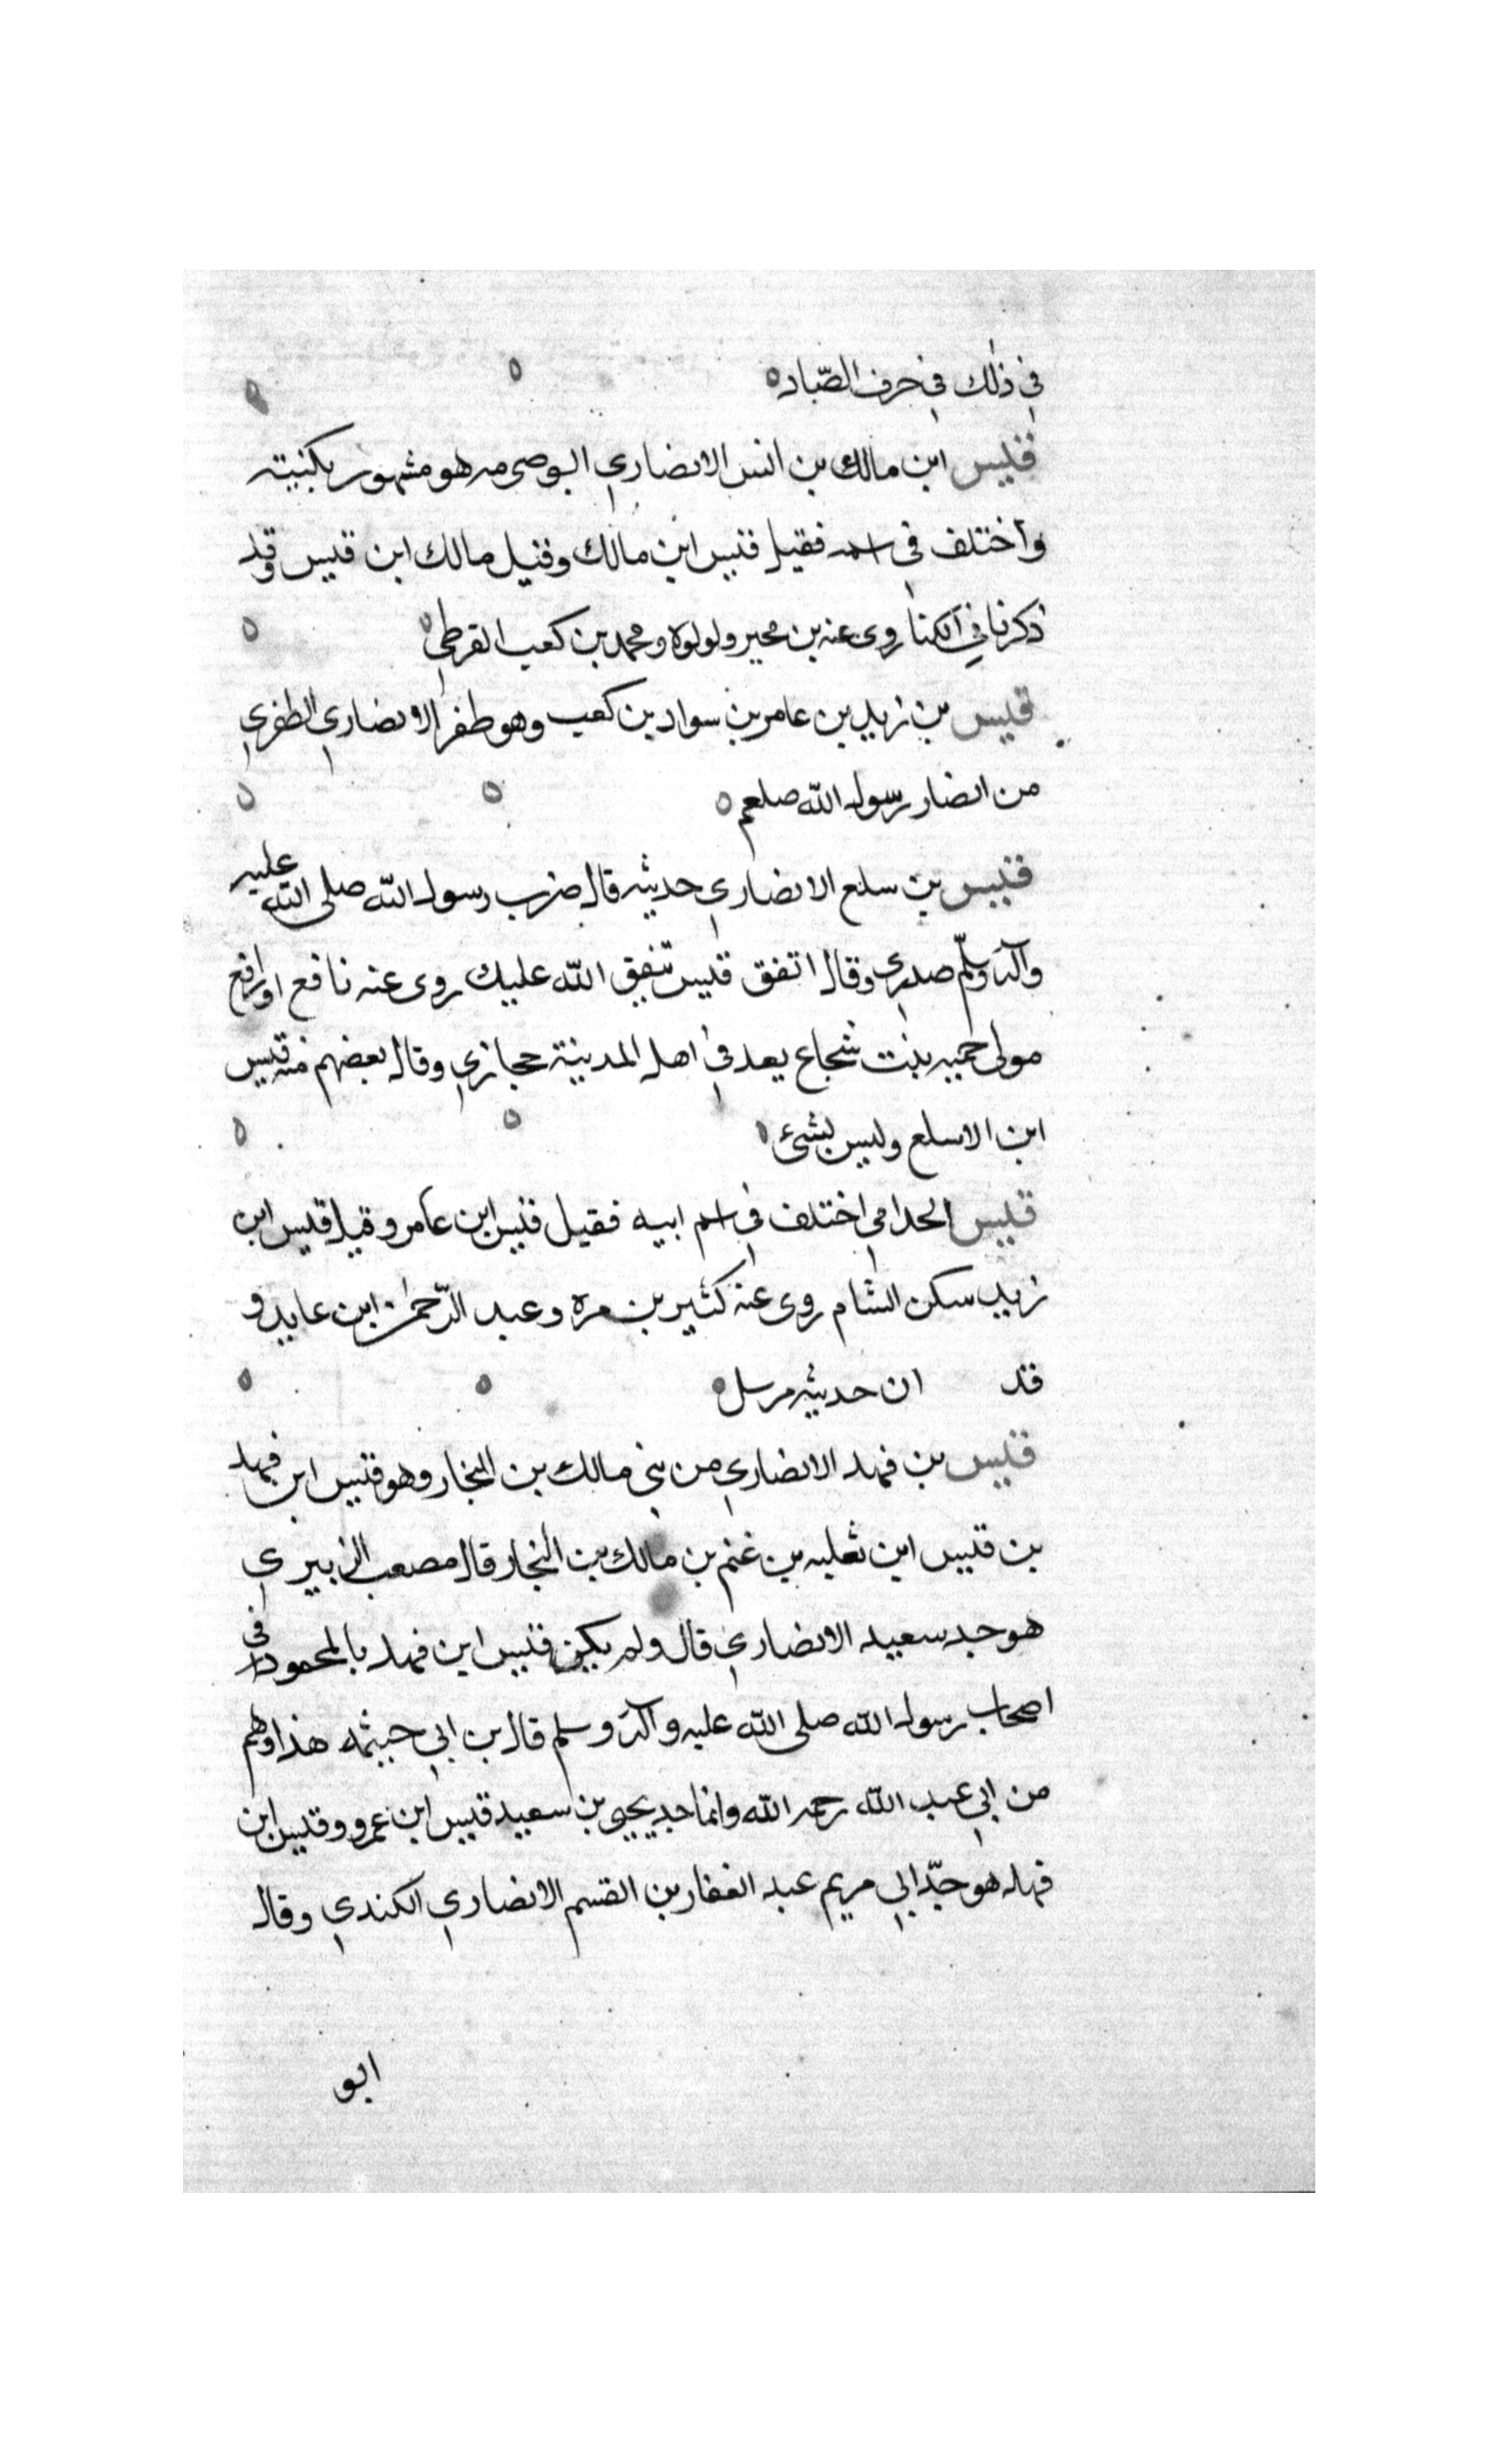 في ذلك في حرف الصّاد ه
قيس ابن مالك بن انس الانصاري ابو صىرمه هو مشهور بكنيته
واختلف في اسمه فقيل قيس ابن مالك وقيل مالك ابن قيس وقد
ذكرنا في الكنا روى عنه بن محير ولولوه ومحمد بن كعب القرطي
قيس بن زيد بن عامر بن سواد بن كعب وهو ظفر الانصاري الظفري
من انصار رسول الله صلعم ه
قيس بن سلع الانصاري حديثه قال ضرب رسول الله صلى الله عليه
وآله وسلّم صدري وقال اتفق قيس تنفق الله عليك روى عنه نافع او رافع
مولى حميه بنت شجاع يعد في اهل المدينة حجازي وقال بعضهم فيه قيس
ابن الاسلع وليس بشئ
قيس الحدامي اختلف في اسم ابيه فقيل قيس ابن عامر وقيل قيس ابن
زيد سكن الشام روى عنه كثير بن مره وعبد الرّحمن ابن عايد و
قد ان حديثه مرسل ه
قيس بن فهد الانصاري من بني مالك بن النجار وهو قيس ابن فهد
بن قيس ابن ثعلبه بن غنم بن مالك بن النجار قال مصعب الزبيري
هو جد سعيد الانصاري قال ولم يكن قيس ابن فهد بالمحمود في
اصحاب رسول الله صلى الله عليه وآله وسلم قال بن ابي خيثمه هذا وهم
من ابي عبد الله رحمه الله وانما جد يحيى بن سعيد قيس ابن عمرو وقيس ابن
فهد هو جدّ ابي مريم عبد الغفار بن القسم الانصاري الكندي وقال
ابو